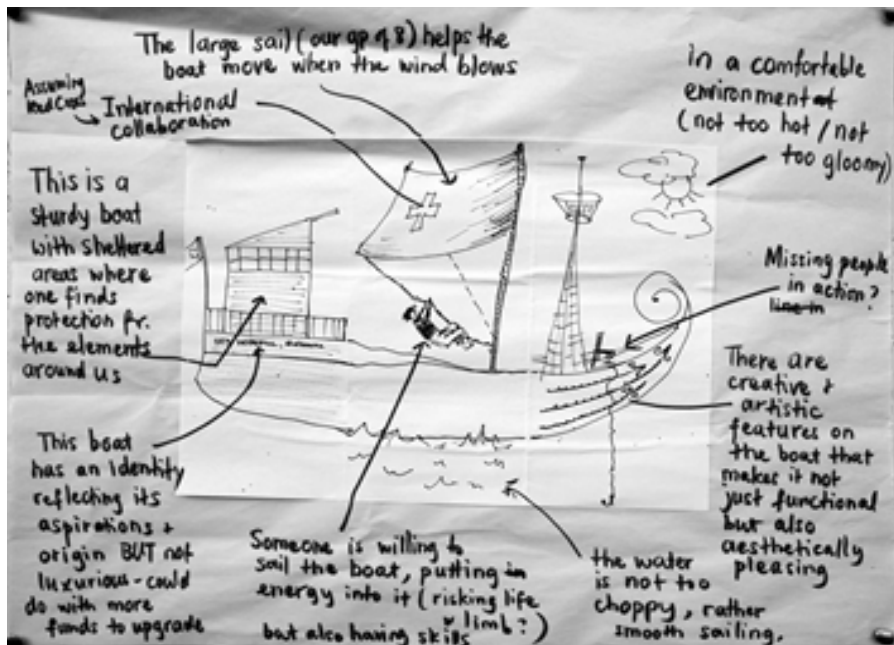 The large sail (our gp of 8) helps the
boat move when the wind blows
Assuming
International
collaboration
in a comfortable
environment
(not too hot / not
too gloomy)
This is a
sturdy boat
with sheltered
areas where
one finds
protection fr.
the elements
around us
Missing people
in action?
There are
creative +
artistic
features on
the boat that
makes it not
just functional
but also
aesthetically
pleasing
This boat
has an identity
reflecting its
aspirations +
origin BUT not
luxurious - could
do with more
funds to upgrade
Someone is willing to
sail the boat, putting
energy into it (risking life
limb?)
but also having skills
the water
is not too
choppy, rather
smooth sailing.